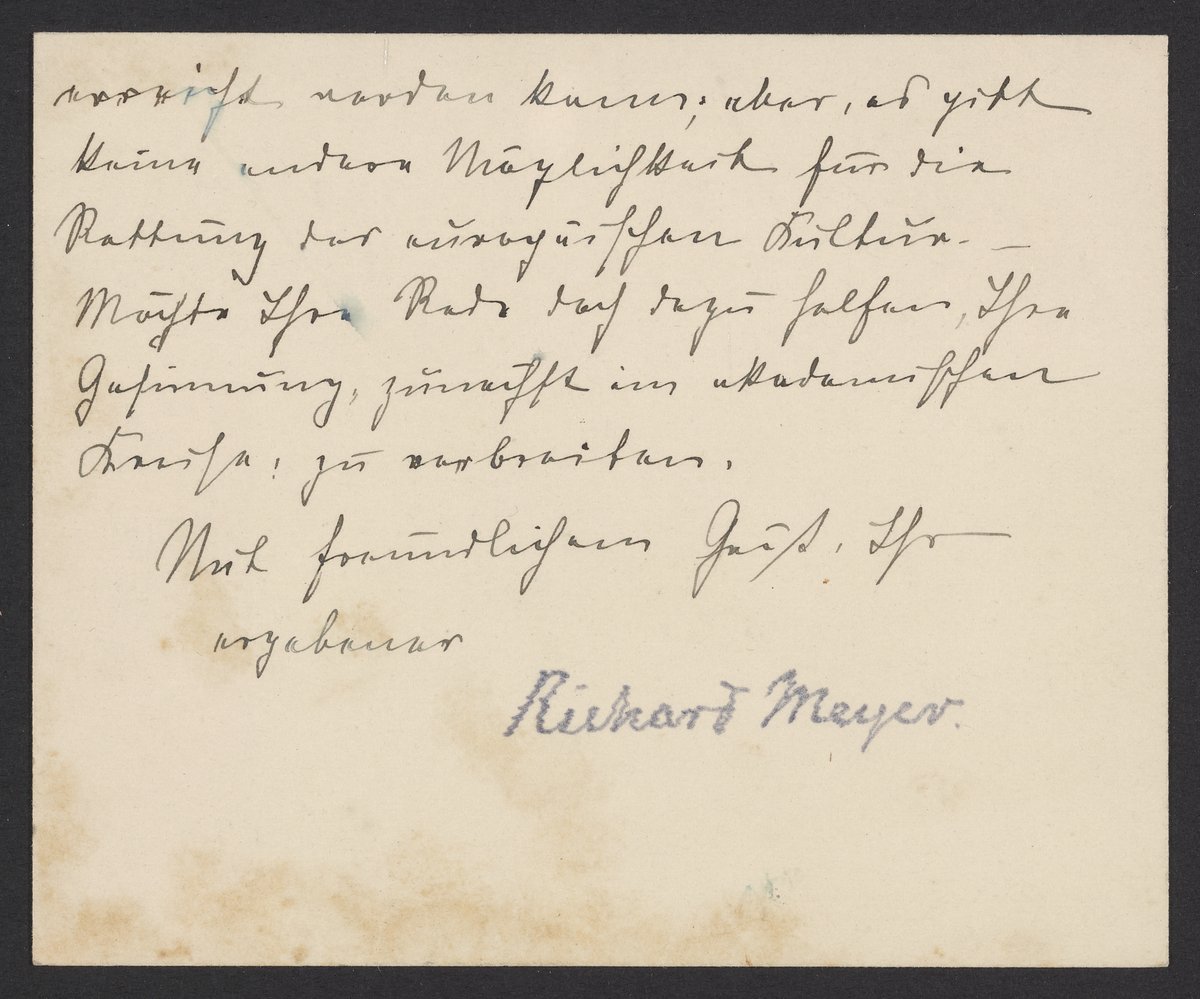 erreicht werden kann; aber, es gibt
keine andere Möglichkeit für die
Rettung der europäischen Kultur. –
Möchte Ihre Rede doch dazu helfen, Ihre
Gesinnung, zunächst im akademischen
Kreise, zu verbreiten.
Mit freundlichem Gruß, Ihr
ergebener
Richard Meyer.